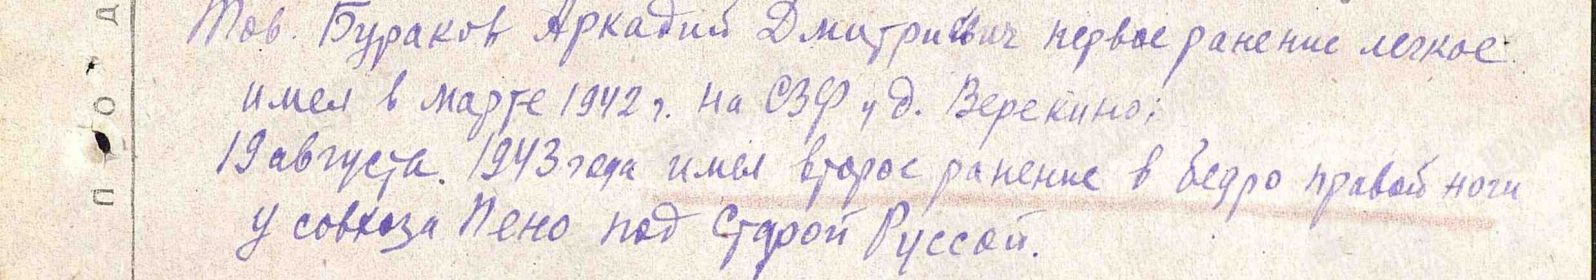 Тов. Бураков Аркадий Дмитриевич первое ранение легкое
имел в марте 1942 г. на СЗФ у д. Верекино;
19 августа. 1943 года имел второе ранение в бедро правой ноги
у совхоза Пено под Старой Руссой.